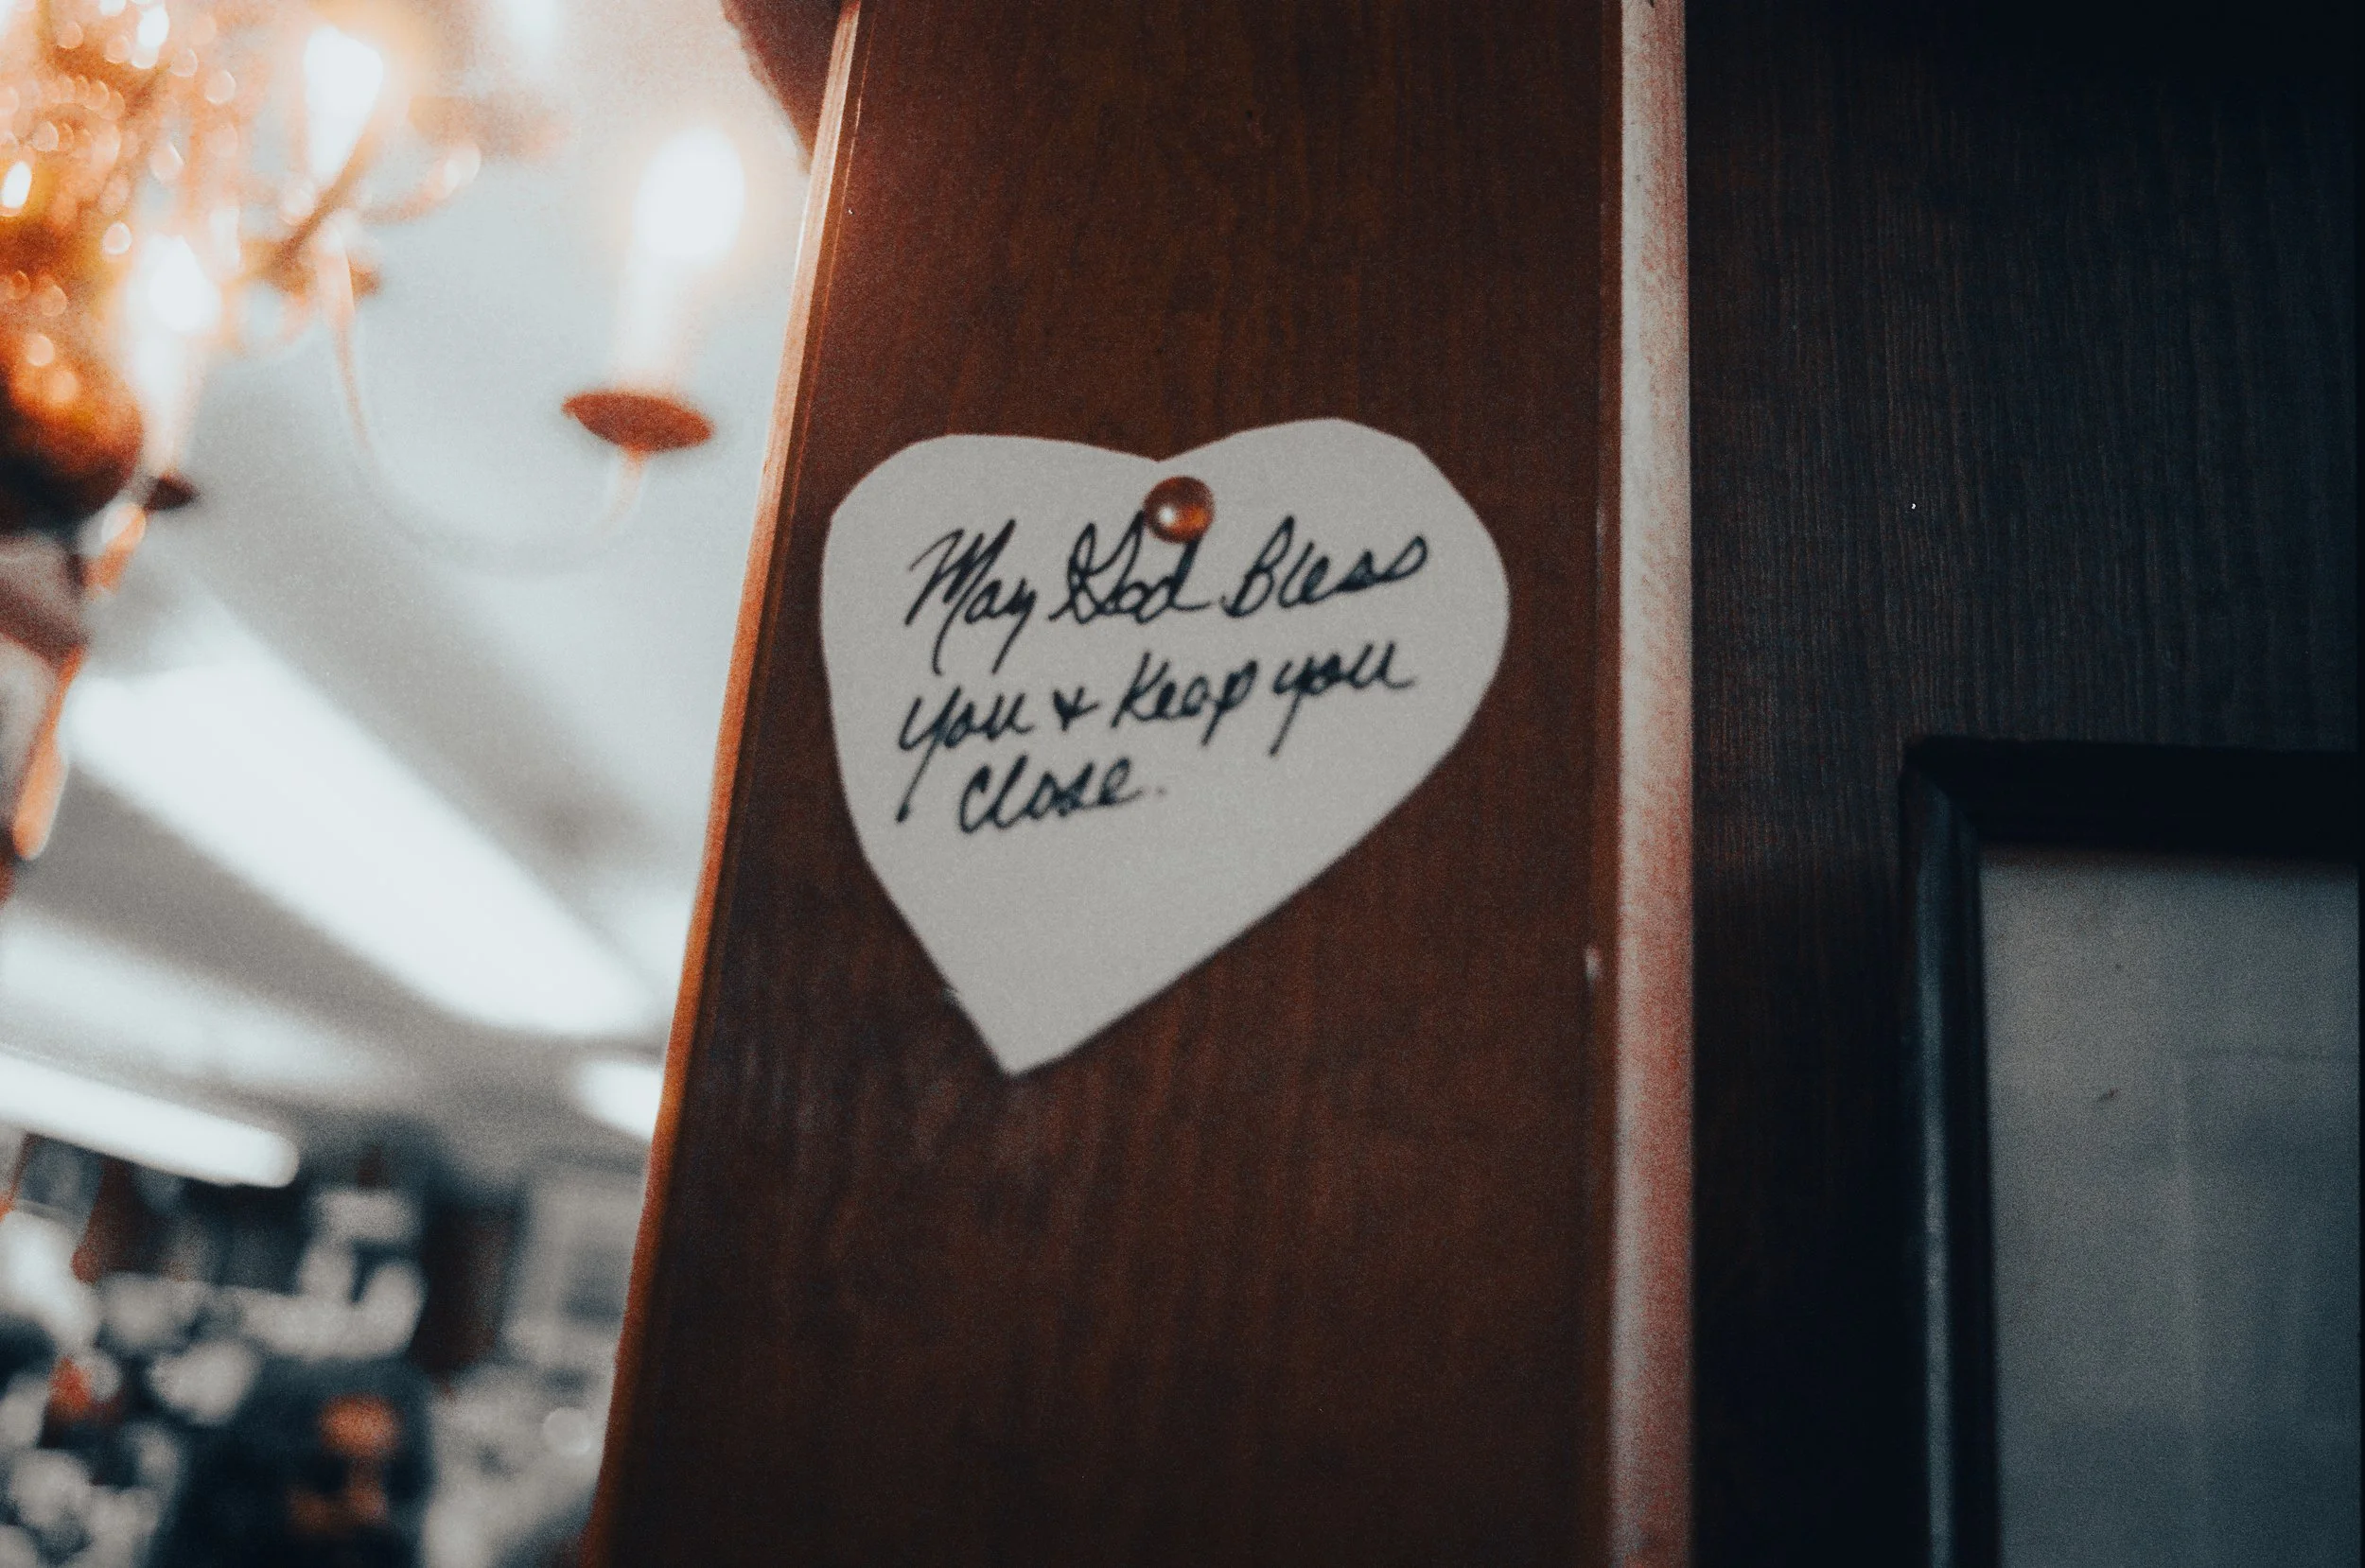 May God Bless
you & Keep you
close.